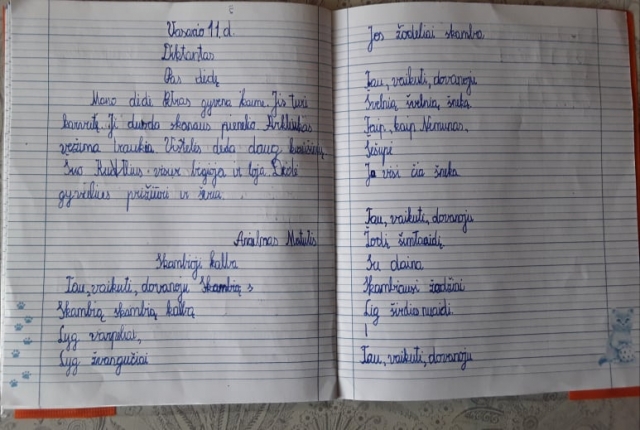 Vasario 11 d.
Diktantas
Pas dėdę
Mano dėdė Petras gyvena kaime. Jis turi
karvutę. Ji duoda skanaus pieno. Arkliukas
vežimą traukia. Vištelės deda daug kiaušinių.
Šuo visur bėgioja ir loja. Dėdė
gyvulius prižiūri ir šeria.
Anzelmas Matutis
Skambioji kalba
Tau, vaikuti, dovanoju Skambią s
Skambią skambią kalbą
Lyg varpkai,
Lyg žvangučiai
Jos žodeliai skamba
Tau, vaikuti, dovanoju
Švelnią švelnią šneką
Taip, kaip Nemunas,
Šešupė
Ja visi čia šneka
Tau, vaikuti, dovanoju
Žodį šimtaaidį
Su daina
Skambiausi žodžiai
Lig širdies nuaidi.
Tau, vaikuti, dovanoju